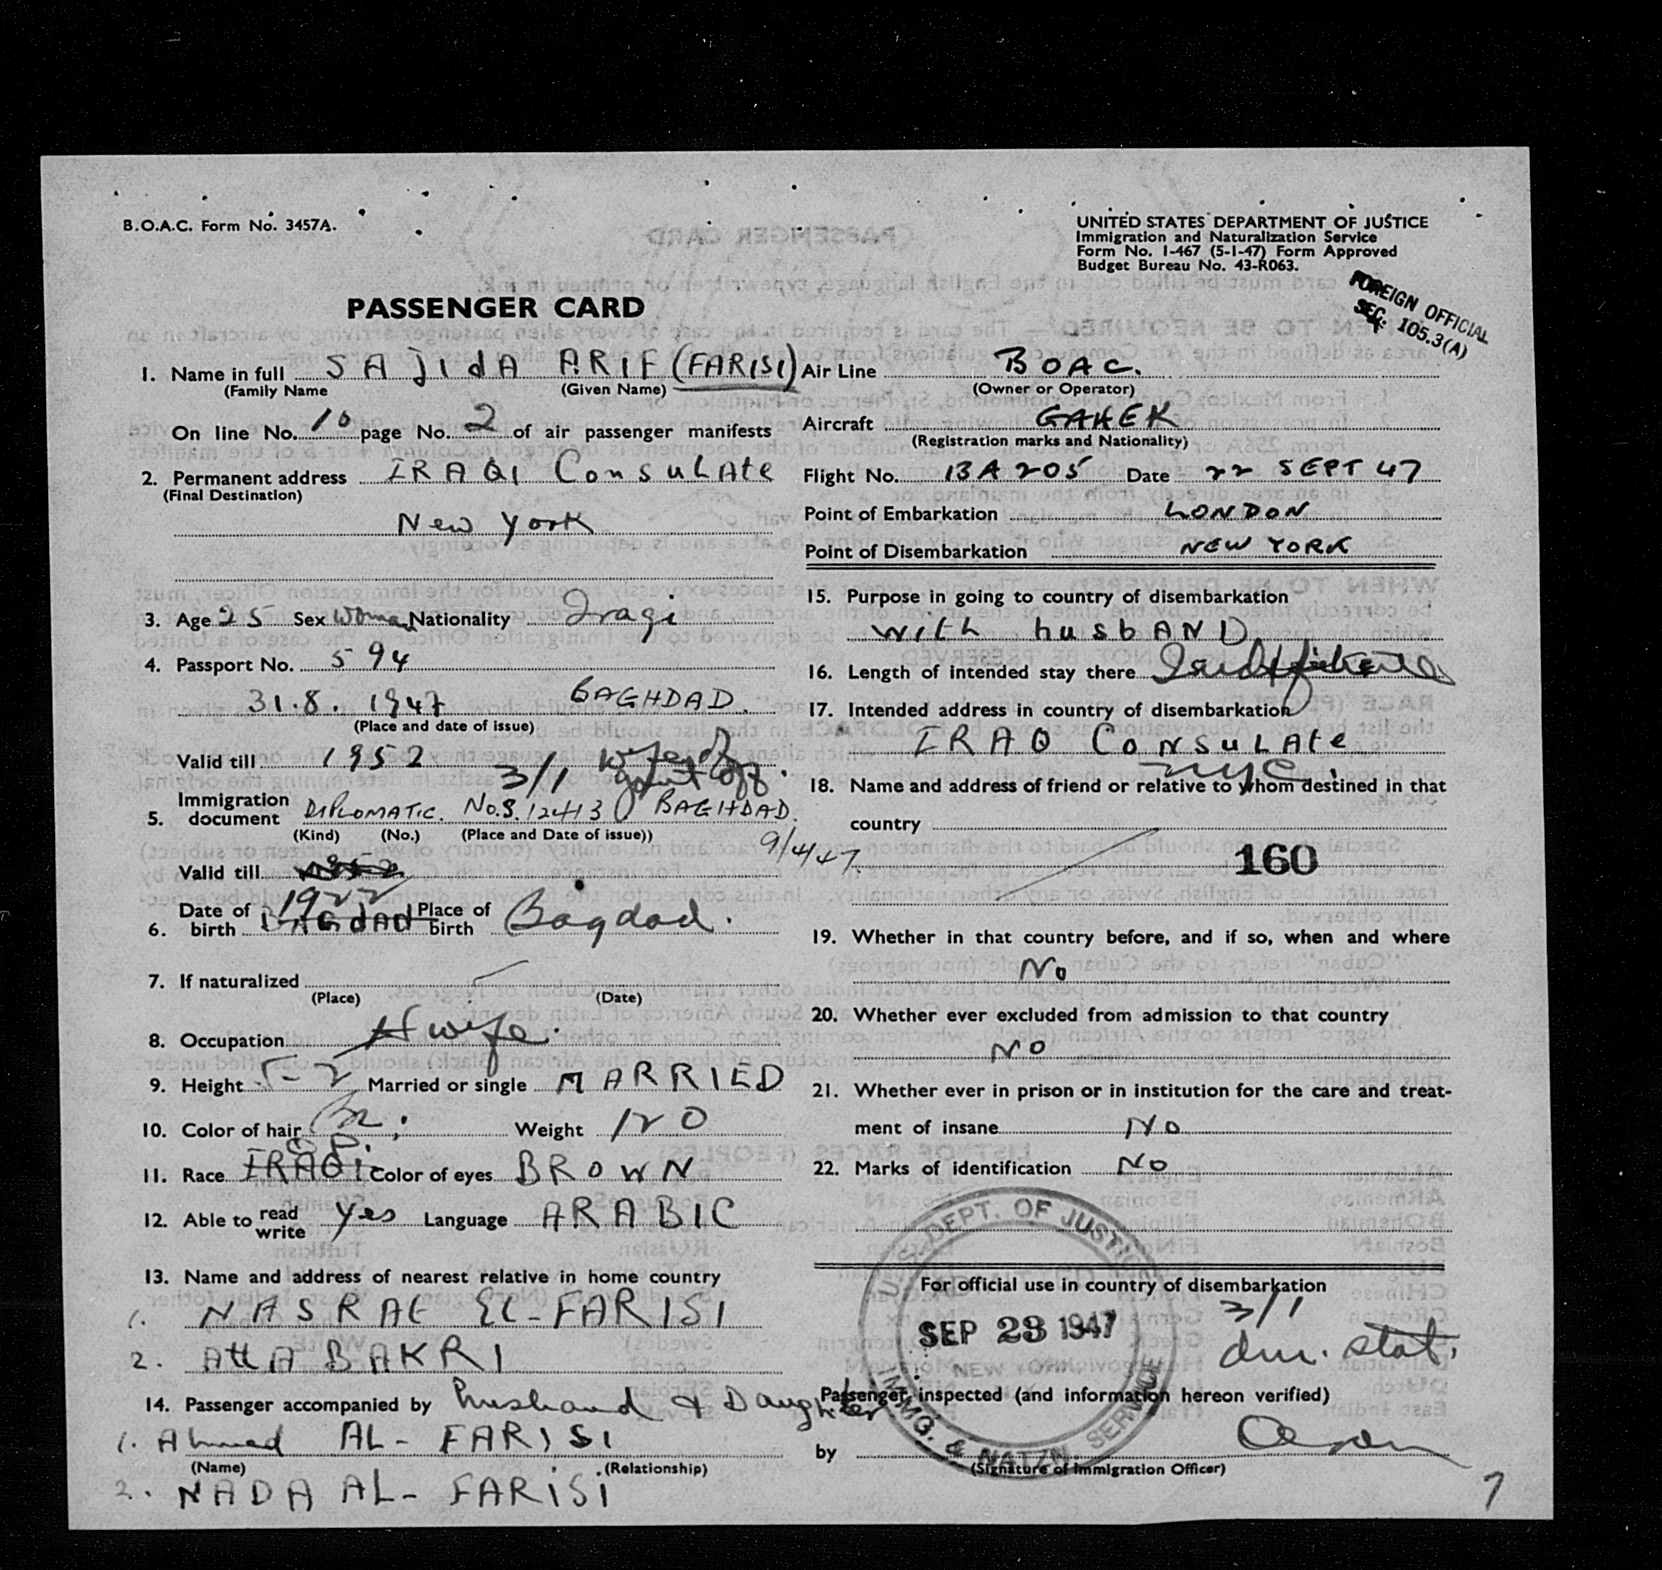 B.O.A.C. Form No. 3457A.
UNITED STATES DEPARTMENT OF JUSTICE
Immigration and Naturalization Service
Form No. I-467 (5-1-47) Form Approved
Budget Bureau No. 43-R063.
FOREIGN OFFICIAL
SEC. 105.3(A)
PASSENGER CARD
1. Name in full SAJIdA ARIF (FARISI)
(Family Name (Given Name)
On line No. 10 page No. 2 of air passenger manifests
2. Permanent address IRAQI ConsuLAte
(Final Destination)
New York
3. Age 25 Sex Woman Nationality Iraqi
4. Passport No. 594
31.8.1947 BAGHDAD.
(Place and date of issue)
Valid till 1952 3/1 wife of
5. Immigration document DIPLOMATIC. No.S.12413 BAGHDAD.
(Kind) (No.) (Place and Date of issue))
9/4/47
Valid till
1922
6. Date of birth BAGdAd Place of birth Bagdad.
7. If naturalized
(Place) (Date)
8. Occupation H wife.
9. Height 5-2 Married or single MARRIED
10. Color of hair Br. Weight 120
11. Race IRAQI Color of eyes BROWN
12. Able to read write Yes Language ARABIC
13. Name and address of nearest relative in home country
1. NASRAE EL-FARISI
2. AttA BAKRI
14. Passenger accompanied by husband & Daughter
1. Ahmed AL-FARISI
(Name) (Relationship)
2. NADA AL-FARISI
Air Line BOAC.
(Owner or Operator)
Aircraft GAHEK
(Registration marks and Nationality)
Flight No. BA 205 Date 22 SEPT 47
Point of Embarkation LONDON
Point of Disembarkation NEW YORK
15. Purpose in going to country of disembarkation
with husbAND
16. Length of intended stay there
17. Intended address in country of disembarkation
IRAQ ConsuLAte
NYC.
18. Name and address of friend or relative to whom destined in that
country
160
19. Whether in that country before, and if so, when and where
No
20. Whether ever excluded from admission to that country
No
21. Whether ever in prison or in institution for the care and treat-
ment of insane No
22. Marks of identification No
For official use in country of disembarkation
3/1
dur. stat.
U.S. DEPT. OF JUSTICE
SEP 23 1947
NEW YORK
IMMG. & NATZN. SERVICE
Passenger inspected (and information hereon verified)
by
(Signature of Immigration Officer)
7